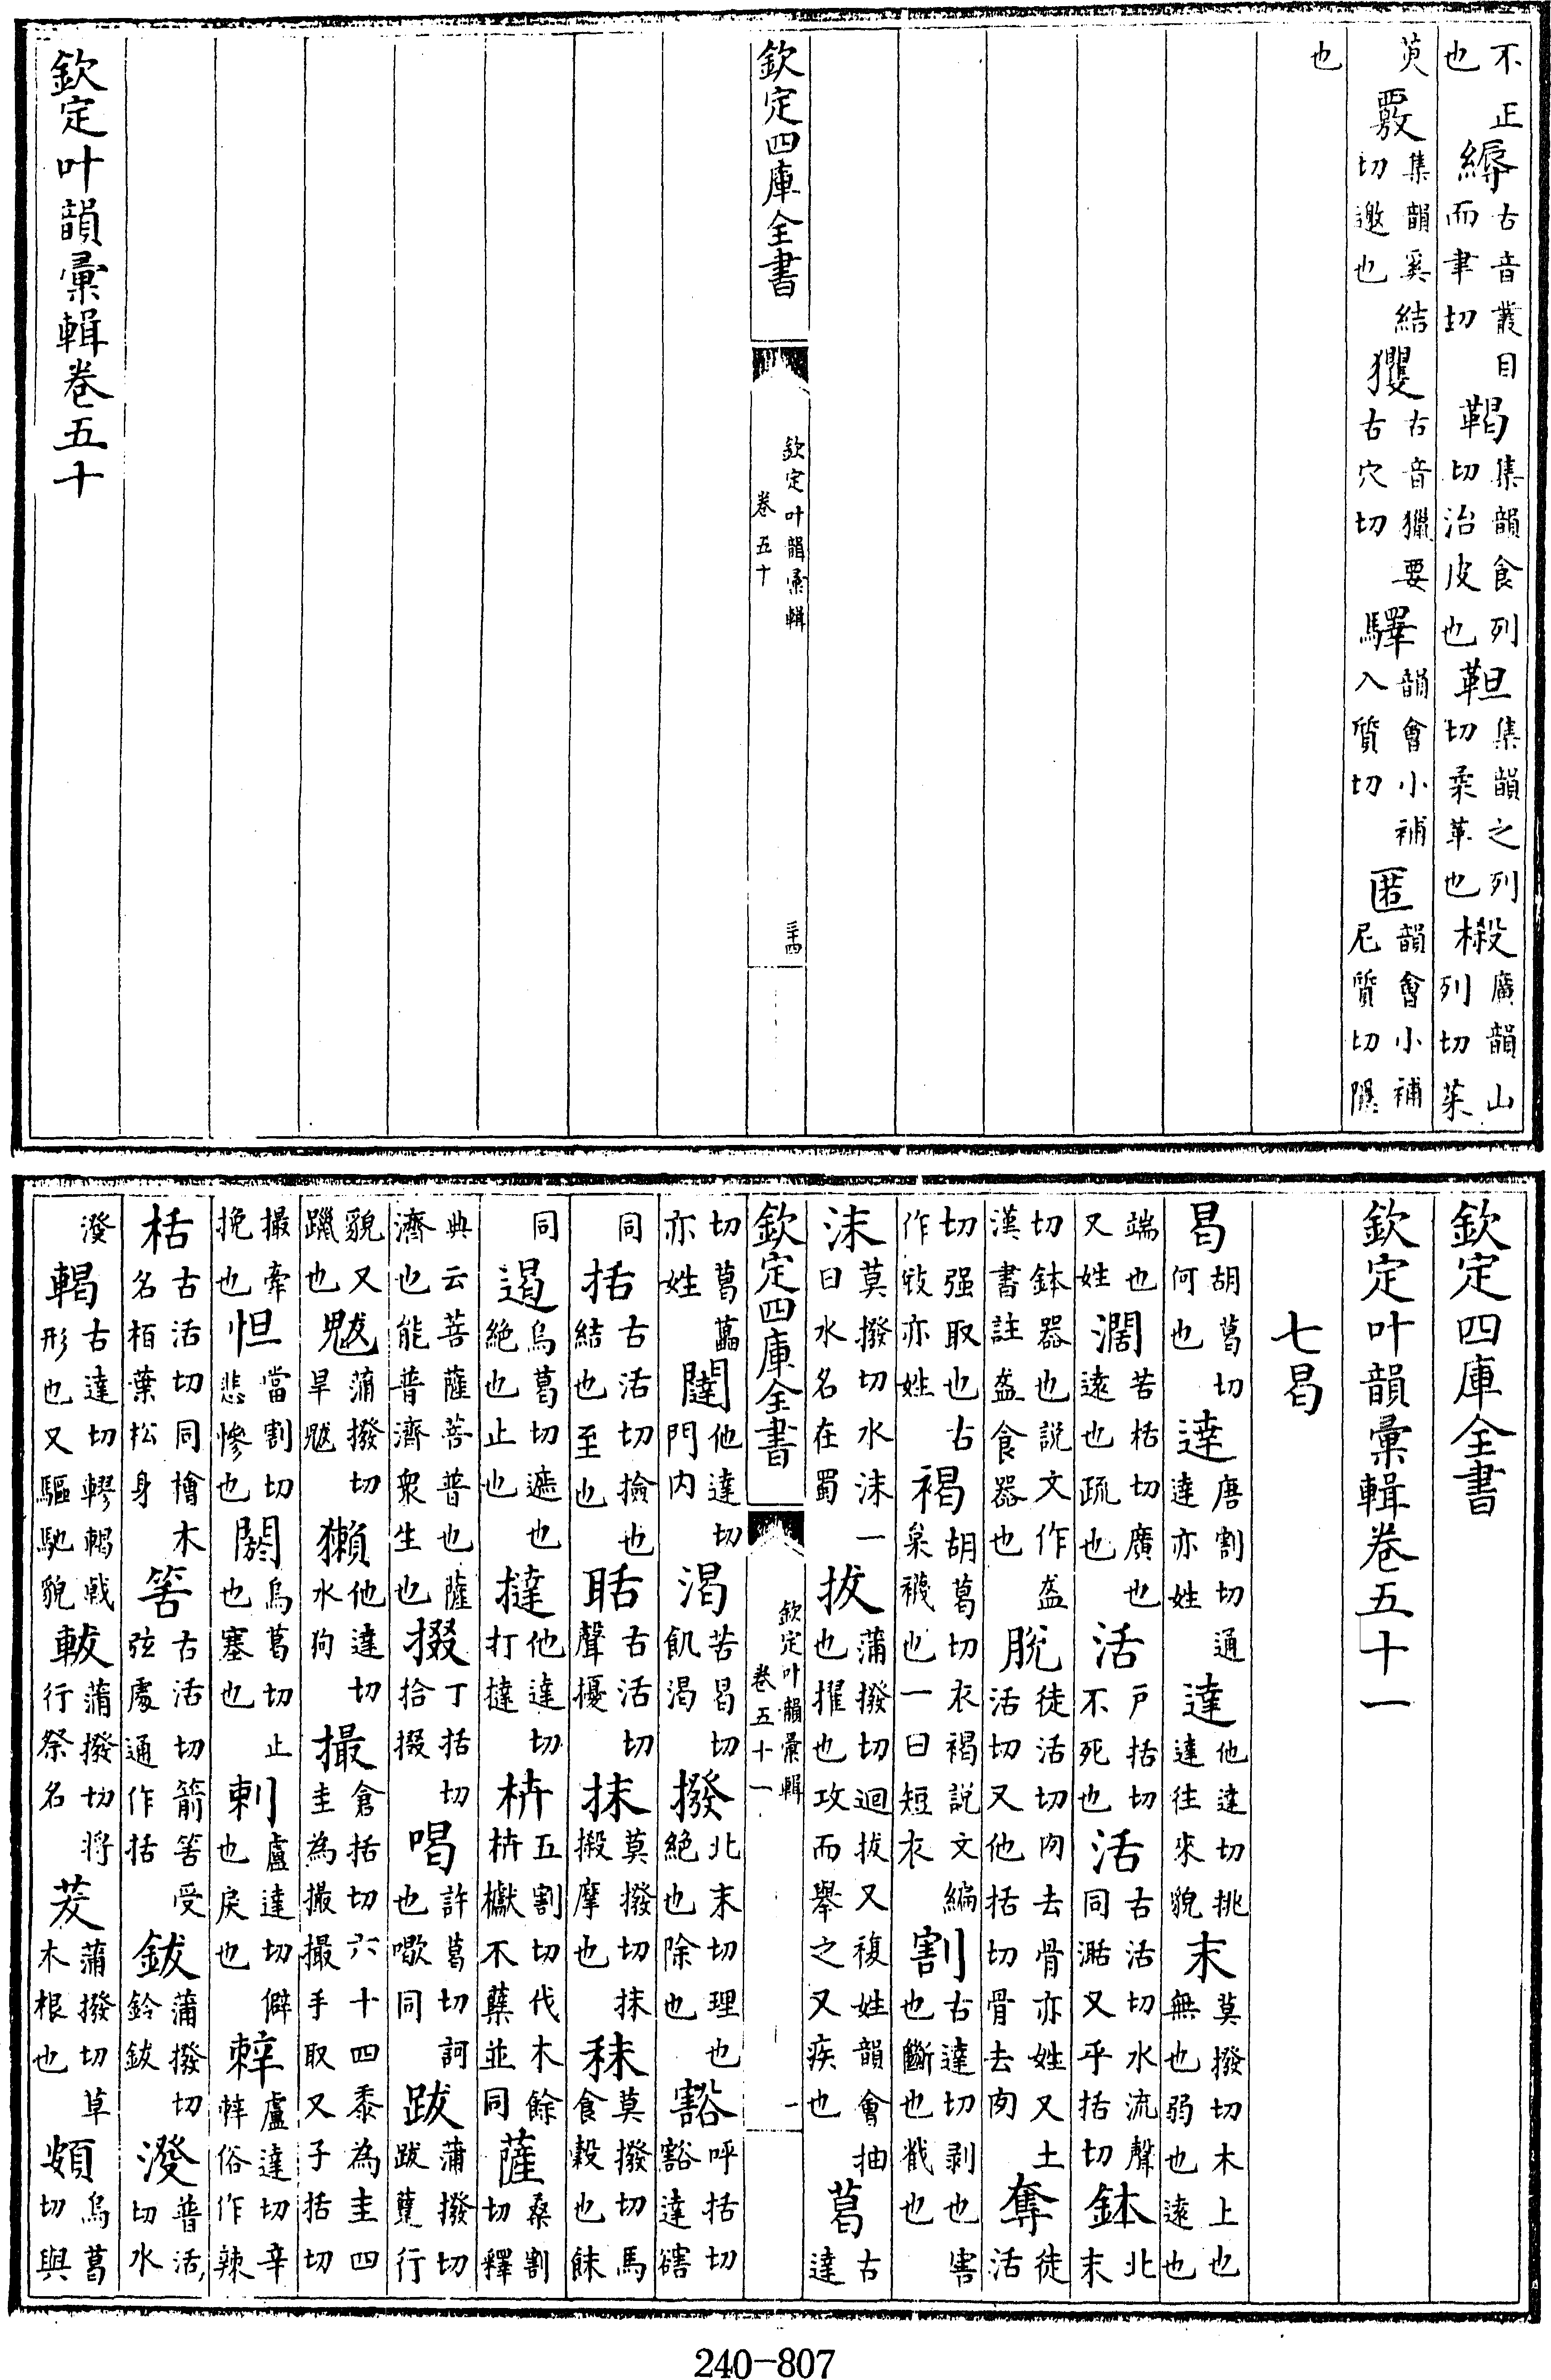 不正也 縟古音叢目而聿切 鞨集韻食列切治皮也 靼集韻之列切柔革也 榝廣韻山列切茱
萸 覈集韻奚結切邀也 玃古音獵要古穴切 驛韻會小補入質切 匿韻會小補尼質切隱
也
欽定四庫全書
欽定叶韻彙輯
卷五十
三十四
欽定叶韻彙輯卷五十
欽定四庫全書
欽定叶韻彙輯卷五十一
七曷
曷胡葛切何也 達唐割切通達亦姓 達他達切挑達往來貌 末莫撥切木上也無也弱也遠也
端也又姓 濶苦栝切廣也遠也疏也 活戶括切不死也 活古活切水流聲同濊又乎括切 鉢北末
切鉢器也說文作盋漢書註盋食器也 脫徒活切肉去骨亦姓又土活切又他括切骨去肉 奪徒活
切强取也古作敓亦姓 褐胡葛切衣褐說文編枲襪也一曰短衣 割古達切剥也害也斷也截也
沫莫撥切水沫一曰水名在蜀 拔蒲撥切迴拔又複姓韻會抽也擢也攻而舉之又疾也 葛古達
欽定四庫全書
欽定叶韻彙輯
卷五十一
一
切葛藟亦姓 闥他達切門内 渴苦曷切飢渴 撥北末切理也絶也除也 豁呼括切豁達磍
同 括古活切撿也結也至也 聒古活切聲擾 抹莫撥切抹摋摩也 秣莫撥切馬食穀也餗
同 遏烏葛切遮也絶也止也 撻他達切打撻 枿五割切伐木餘枿櫱不蘖並同 薩桑割切釋
典云菩薩菩普也薩濟也能普濟衆生也 掇丁括切拾掇 喝許葛切訶也嘞同 跋蒲撥切跋躠行
貌又躐也 魃蒲撥切旱魃 獺他達切水狗 撮倉括切六十四黍為圭四圭為撮撮手取又子括切
撮牽挽也 怛當割切悲慘也 閼烏葛切止也塞也 剌盧達切僻也戾也 㻝盧達切辛㻝俗作辣
栝古活切同檜木名栢葉松身 筈古活切箭筈受弦處通作括 鈸蒲撥切鈴鈸 潑普活切水
潑 輵古達切轇輵戟形也又驅馳貌 軷蒲撥切將行祭名 茇蒲撥切草木根也 頞烏葛切與
240-807